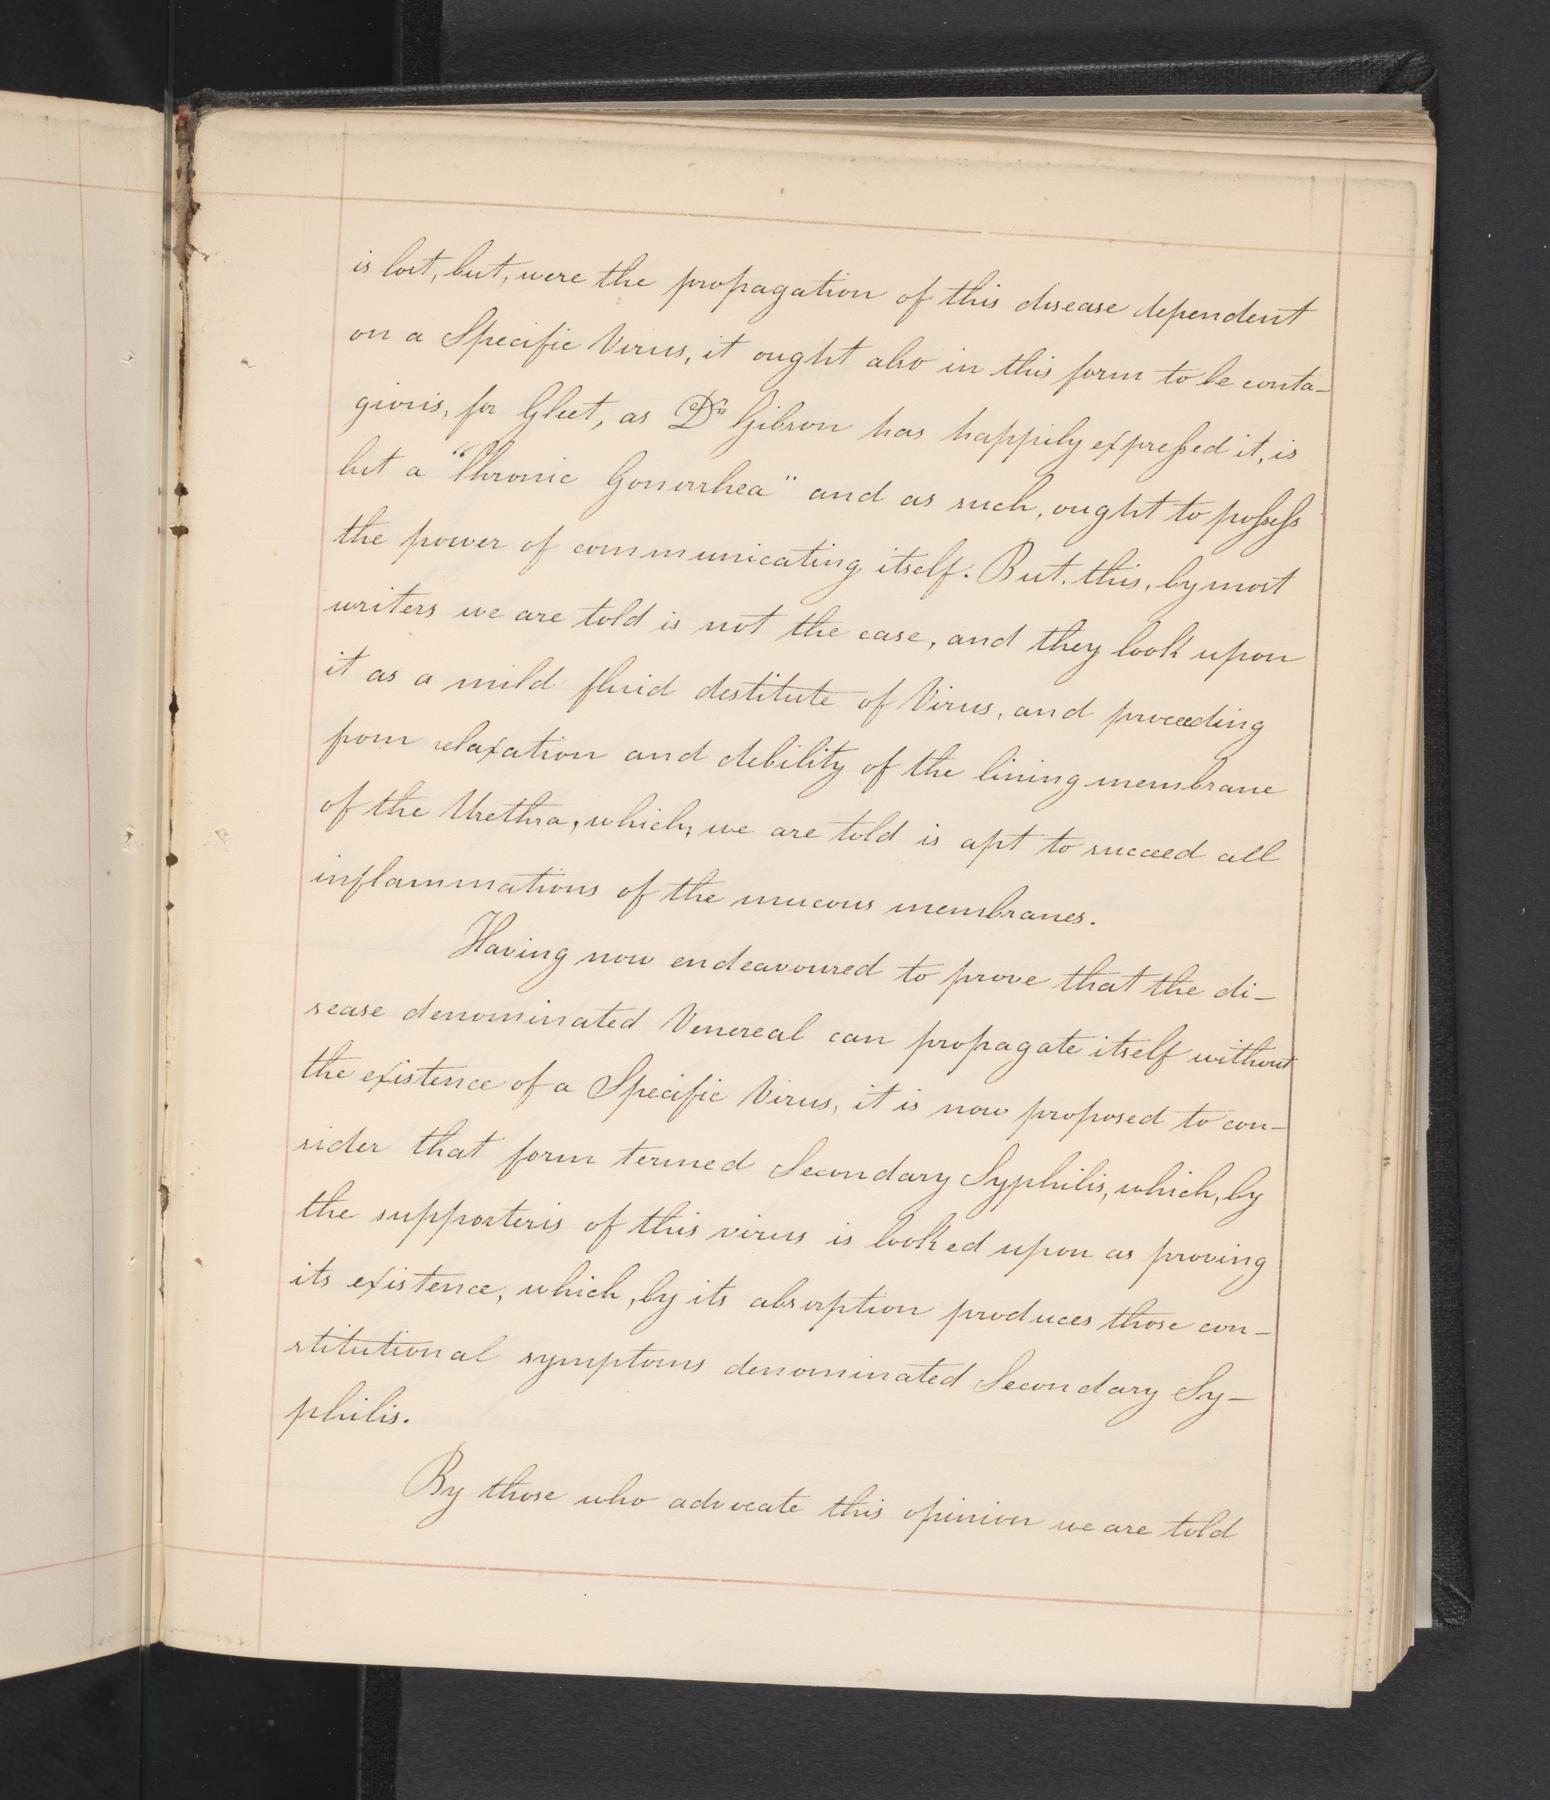 is lost, but, were the propagation of this disease dependent
on a Specific Virus, it ought also in this form to be conta-
gious, for Gleet, as Dr. Gibson has happily expressed it, is
but a "Chronic Gonorrhea" and as such, ought to possess
the power of communicating itself. But, this, by most
writers we are told is not the case, and they look upon
it as a mild fluid destitute of Virus, and proceeding
from relaxation and debility of the lining membrane
of the Urethra, which, we are told is apt to succeed all
inflammations of the mucous membranes.
Having now endeavoured to prove that the di-
sease denominated Venereal can propagate itself without
the existence of a Specific Virus, it is now proposed to con-
sider that form termed Secondary Syphilis, which, by
the supporteris of this virus is looked upon as proving
its existence, which, by its absorption produces those con-
stitutional symptoms denominated Secondary Sy-
philis.
By those who advocate this opinion we are told